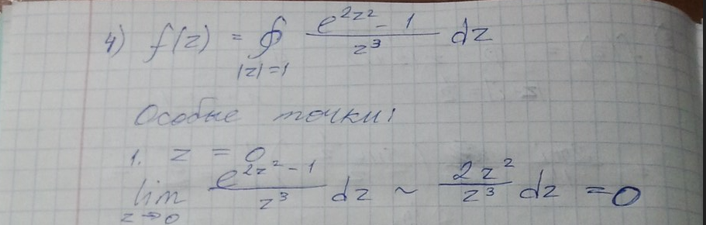 4) f(z) = ∮ (e^{2z²} - 1)/z³ dz
|z|=1
Особые точки:
1. z = 0
lim (e^{2z²} - 1)/z³ dz ~ 2z²/z³ dz = 0
z→0